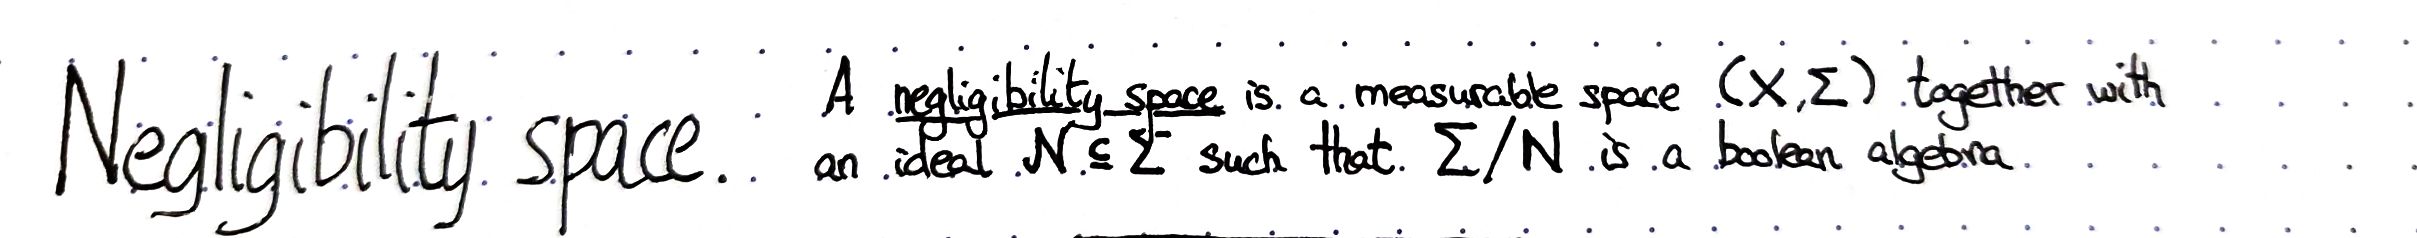 Negligibility space.
A negligibility space is a measurable space (X,Σ) together with
an ideal N ⊆ Σ such that Σ/N is a boolean algebra.